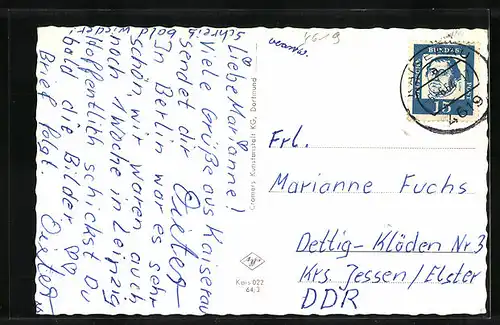 schreib bald wieder!
Liebe Marianne!
Viele Grüße aus Kaiserau
sendet dir Dieter
In Berlin war es sehr
schön wir waren auch
noch 1 Woche in Leipzig
Hoffentlich schickst Du
bald die Bilder
Brief folgt. Dieter
Cramers Kunstanstalt KG, Dortmund
Kais 022
64/3
DEUTSCHE BUNDESPOST
15
Frl.
Marianne Fuchs
Dettig-Klöden Nr.3
Krs. Jessen/Elster
DDR